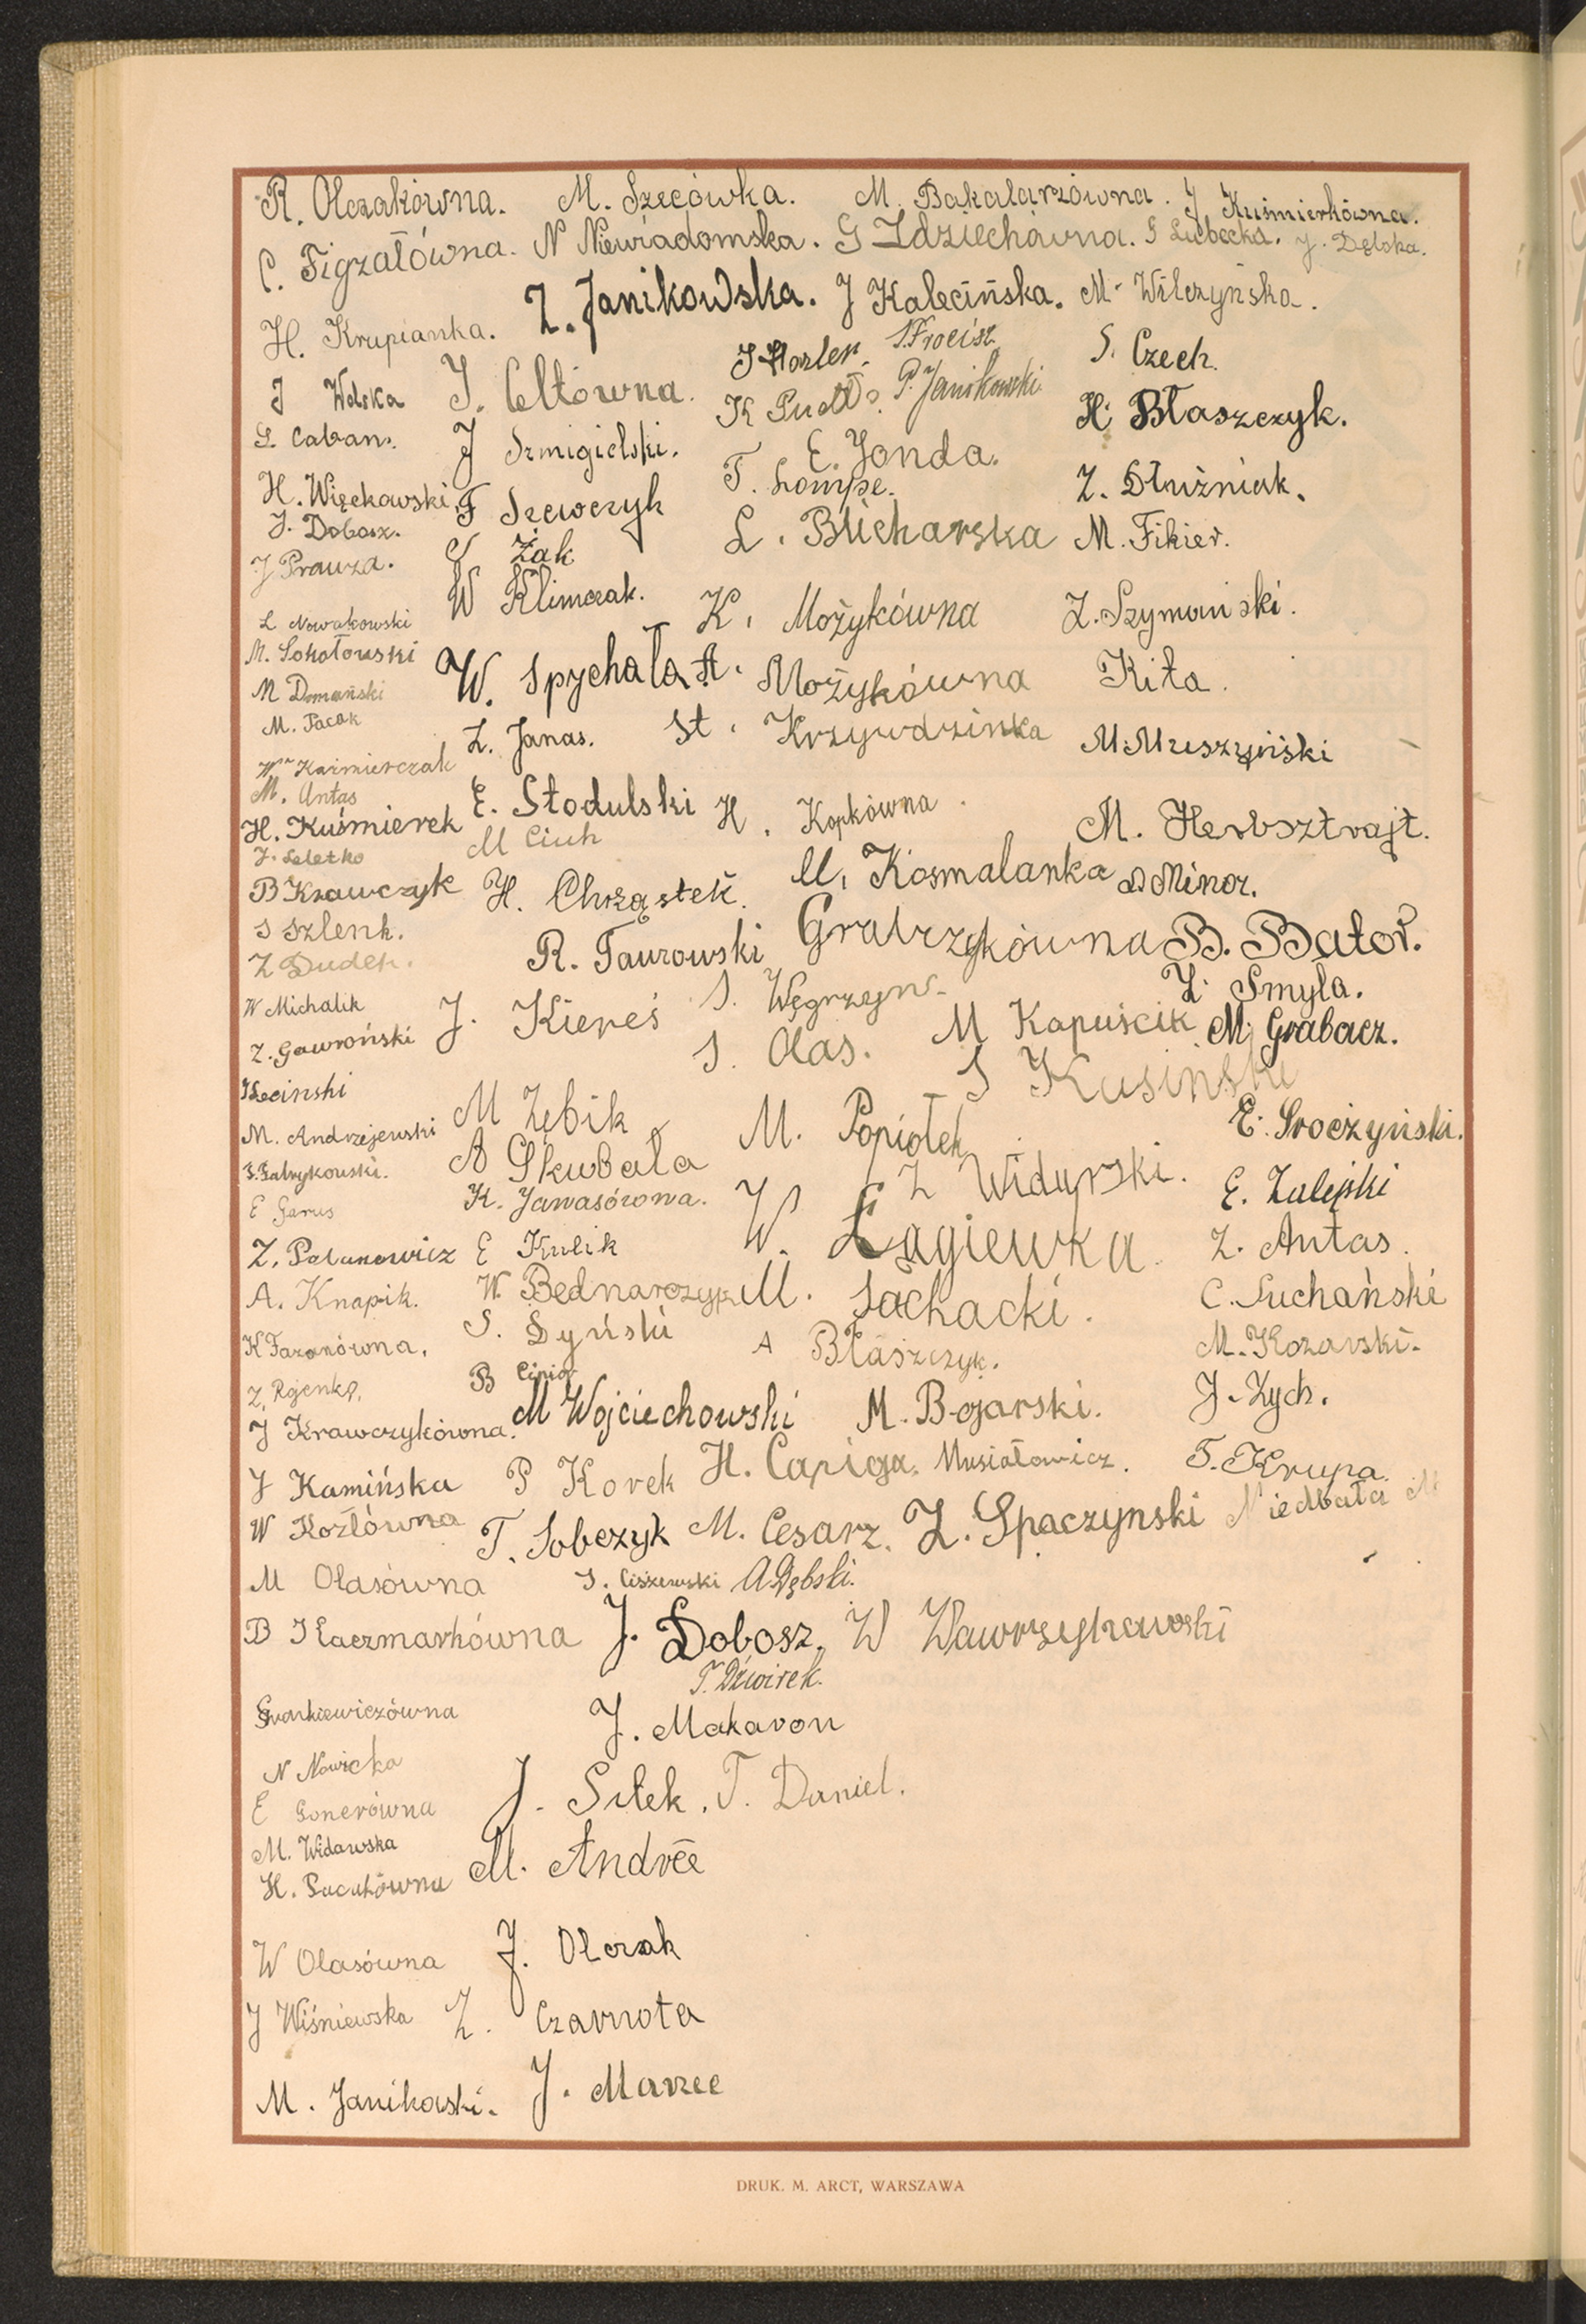 R. Olczakówna. M. Szecówka. M. Bakalarzówna. J Kuśmierkówna.
C. Figzałówna. N Niewiadomska. G Zdziechówna. S Lubecka. J. Dębska.
H. Krupianka. Z. Janikowska. J Kalecińska. M. Wilczyńska.
J Wolska J. Celtówna. J Hozler. S. Frocisz. S. Czech.
S. Caban. J Szmigielski. K P. Janikowski H. Błaszczyk.
H. Więckowski. F Szewczyk T. Lompe. E. Jonda. Z. Dłużniak.
J. Dobosz. S Żak L. Blicharska M. Fikier.
J Prauza. W Klimczak. K. Możykówna Z. Szymański.
L Nowakowski
M. Sokołowski W. Spychała A. Możykówna Kita.
M Domański
M. Pacak Z. Janas. St. Krzywdzinka M. Muszyński
Wł Kaźmierczak
M. Antas E. Stodulski H. Kopkówna M. Herbsztrajt.
H. Kuśmierek M Ciuch
J. Seletko
B Krawczyk H. Chrząstek. M. Kosmalanka D Minor.
S Szlenk. R. Taurowski Grabrzykówna B. Bator.
Z Dudek.
W Michalik J. Kiereś S. Węgrzyn Z. Smyła.
Z. Gawroński S. Olas. M Kapuścik M. Grabacz.
Keciński S Kusiński
M. Andrzejewski M Zębik M. Popiołek E. Sroczyński.
S. Fabrykowski. A Skubała Z Widurski. E. Zalejski
E Garus K. Jawasówna. W. Łagiewka Z. Antas.
Z. Palunowicz E Kulik
A. Knapik. W. Bednarczyk M. Sachacki. C. Suchański
K Fazanówna. S. Dyński A Błaszczyk. M. Kozarski.
Z. Rojenka. B Cipior
J Krawczykówna. M Wojciechowski M. Bojarski. J. Zych.
J Kamińska P Korek H. Capiga. Musiałowicz. T. Krupa.
W Kozłówna T. Sobczyk M. Cesarz. Z. Spaczynski Niedbała M
M Olasówna S. Ciszewski A. Dębski.
B Kaczmarkówna J. Dobosz. W Wawrzynkowski
T. Dźwirek.
Siankiewiczówna J. Makaron
N Nowicka
E Gonerówna J. Sitek. T. Daniel.
M. Widawska
H. Sucukówna M. Andrée
W Olasówna J. Olczak
J Wiśniewska Z. Czarnota
M. Janikowski. J. Marzec
DRUK. M. ARCT, WARSZAWA